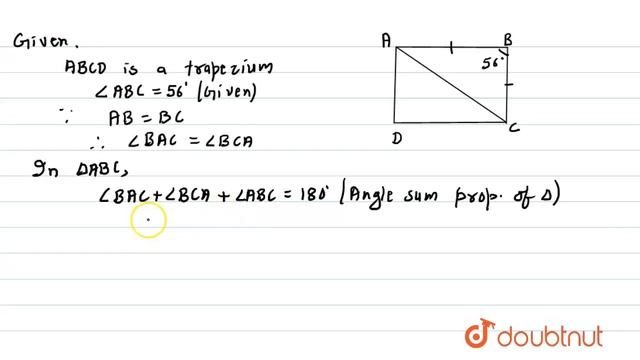 Given.
ABCD is a trapezium
∠ABC = 56° (Given)
∵ AB = BC
∴ ∠BAC = ∠BCA
In ΔABC,
∠BAC + ∠BCA + ∠ABC = 180° (Angle sum prop. of Δ)
A B
56°
D C
doubtnut